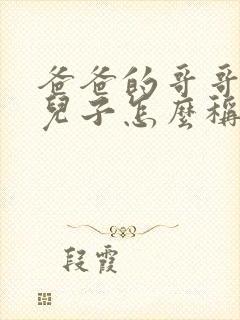 爸爸的哥哥
兒子怎麼稱
段霞